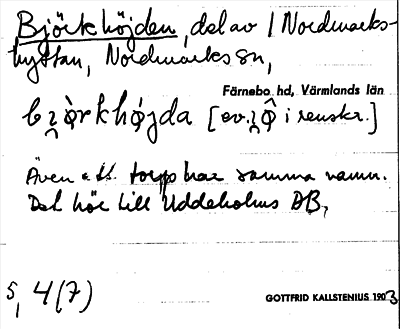 Björkhöjden, del av 1 Nordmarks-
hyttan, Nordmarks sn,
Färnebo hd, Värmlands län
[ev. i renskr.]
Även ett torp har samma namn.
Det hör till Uddeholms AB,
s, 4(7)
GOTTFRID KALLSTENIUS 1903